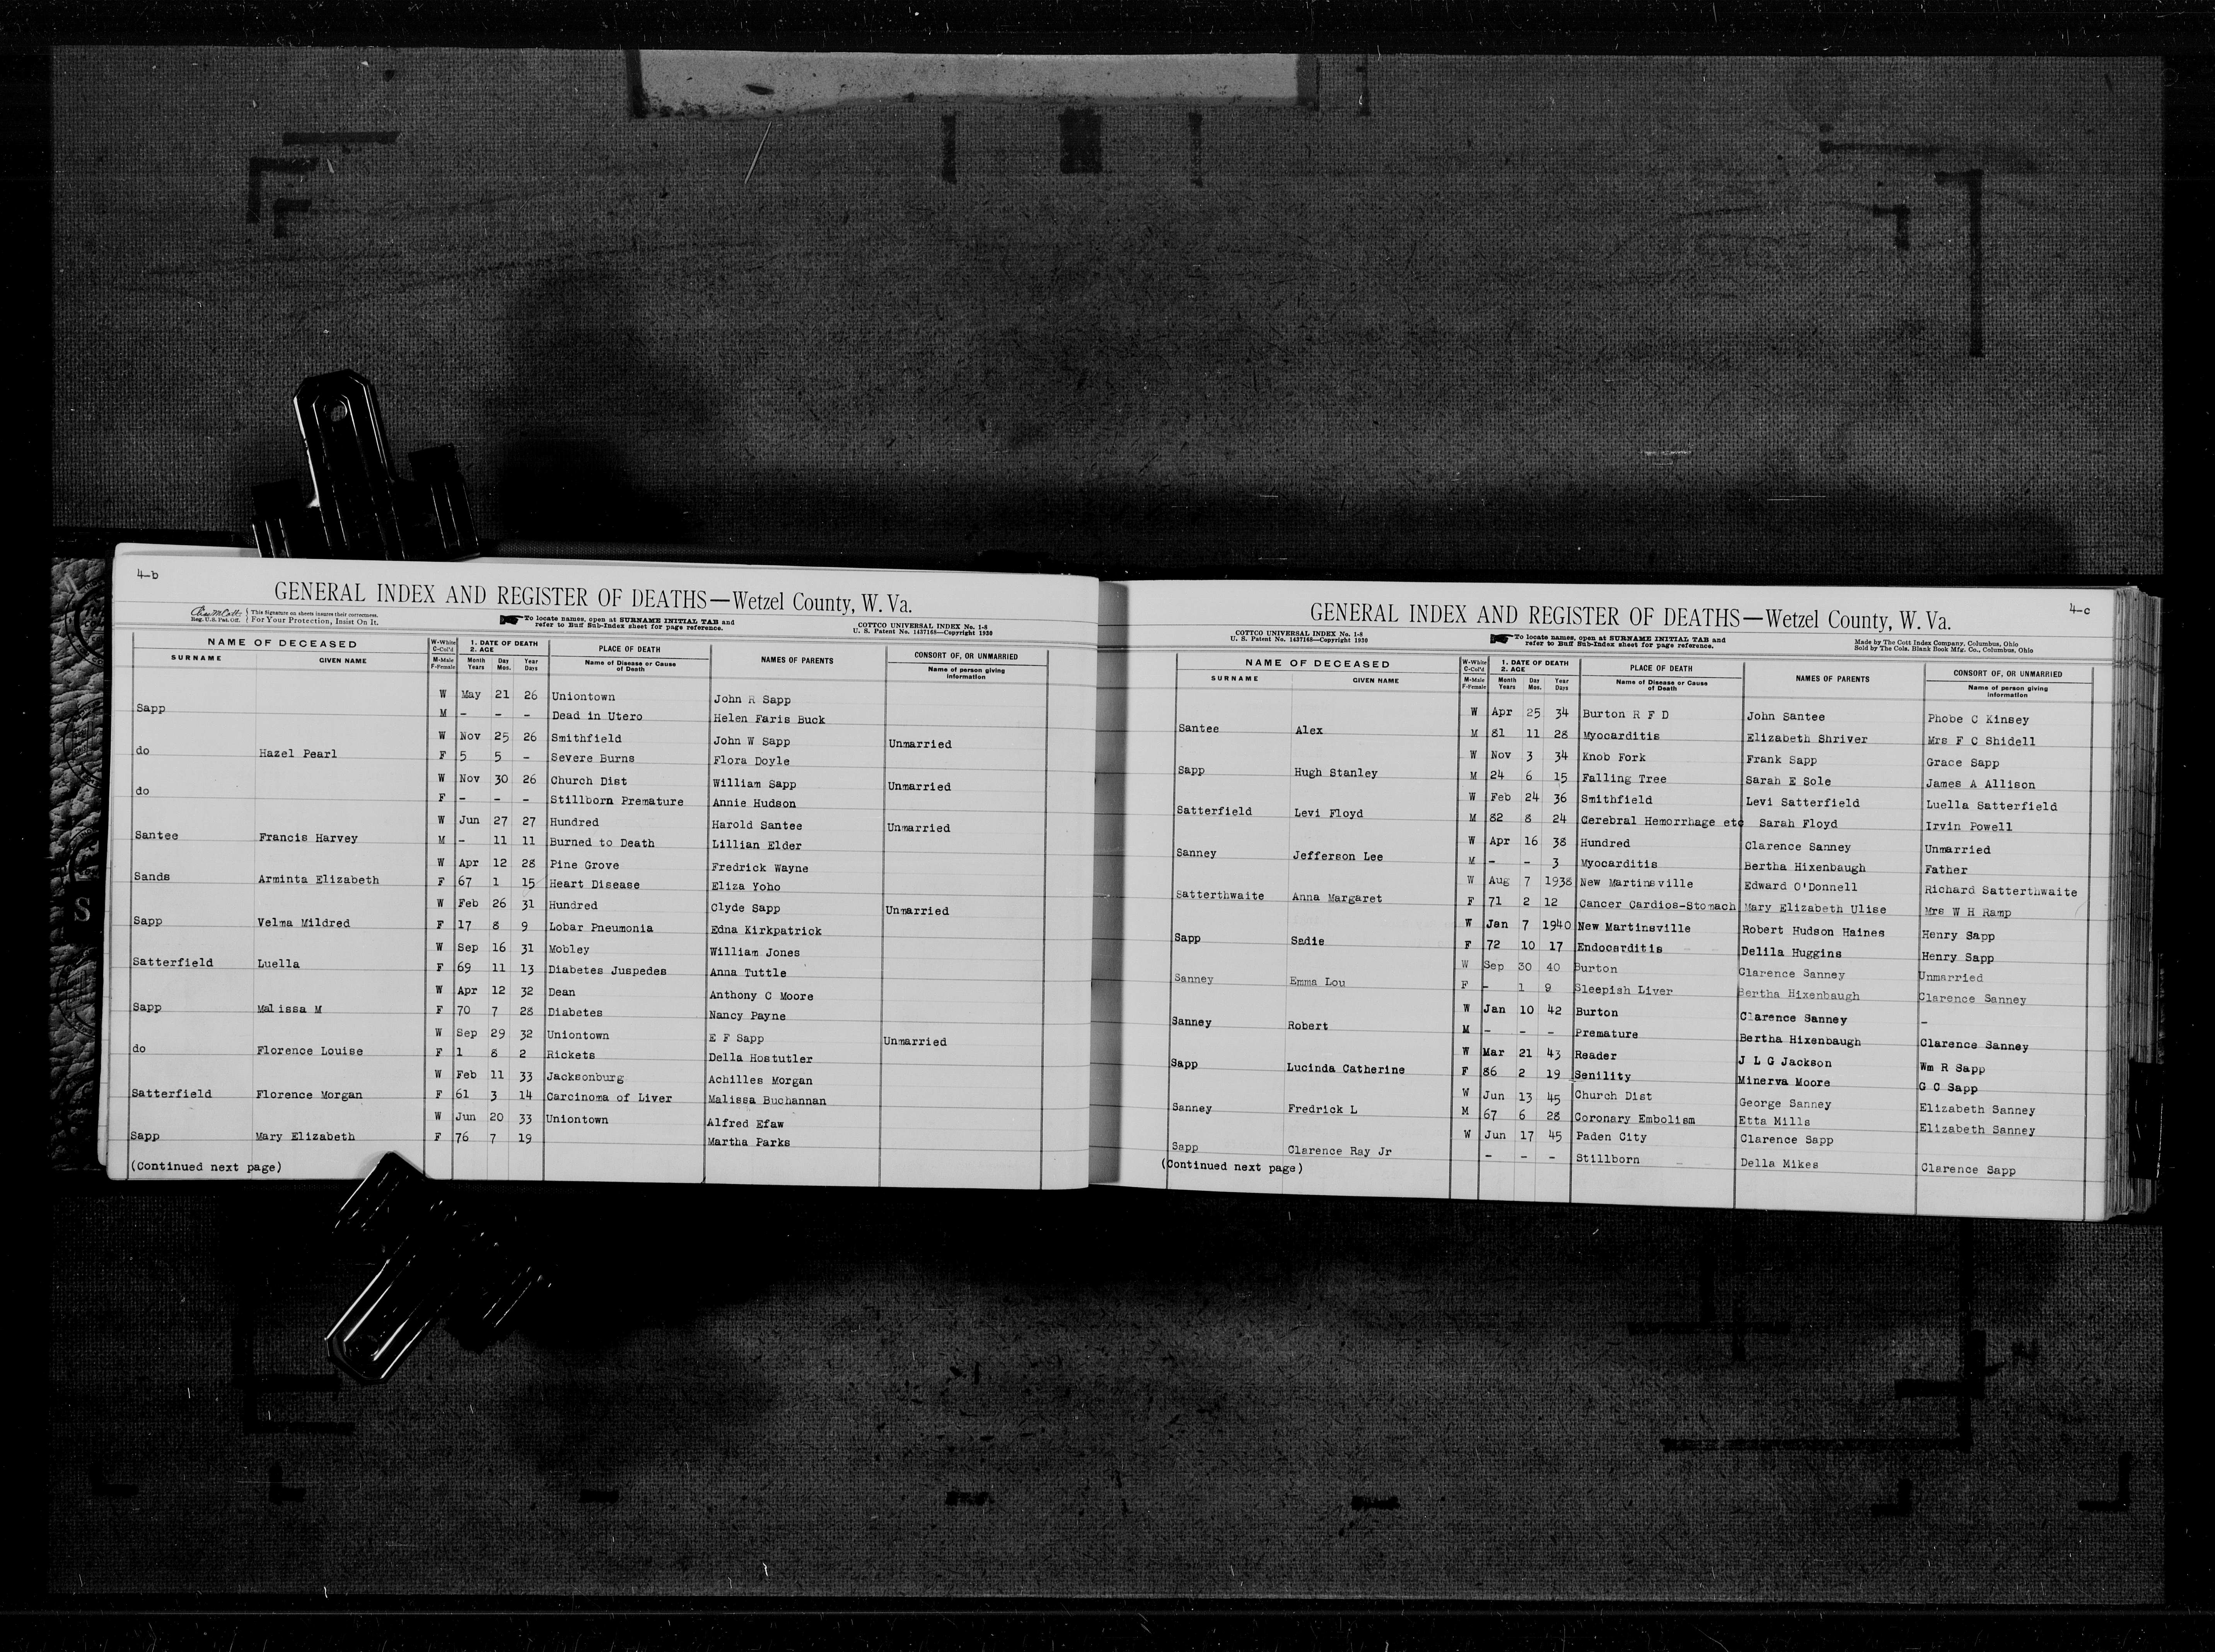 4-b
GENERAL INDEX AND REGISTER OF DEATHS—Wetzel County, W. Va.
Reg. U.S. Pat. Off. { This Signature on sheets insures their correctness. For Your Protection, Insist On It.
To locate names, open at SURNAME INITIAL TAB and refer to Buff Sub-Index sheet for page reference.
COTTCO UNIVERSAL INDEX No. 1-8
U. S. Patent No. 1437168—Copyright 1930
NAME OF DECEASED
SURNAME GIVEN NAME
W-White C-Col'd M-Male F-Female
1. DATE OF DEATH 2. AGE
Month Day Year
Years Mos. Days
PLACE OF DEATH
Name of Disease or Cause of Death
NAMES OF PARENTS
CONSORT OF, OR UNMARRIED
Name of person giving information
W May 21 26 Uniontown John R Sapp
Sapp M - - - Dead in Utero Helen Faris Buck
W Nov 25 26 Smithfield John W Sapp Unmarried
do Hazel Pearl F 5 5 - Severe Burns Flora Doyle
W Nov 30 26 Church Dist William Sapp Unmarried
do F - - - Stillborn Premature Annie Hudson
W Jun 27 27 Hundred Harold Santee Unmarried
Santee Francis Harvey M - 11 11 Burned to Death Lillian Elder
W Apr 12 28 Pine Grove Fredrick Wayne
Sands Arminta Elizabeth F 67 1 15 Heart Disease Eliza Yoho
W Feb 26 31 Hundred Clyde Sapp Unmarried
Sapp Velma Mildred F 17 8 9 Lobar Pneumonia Edna Kirkpatrick
W Sep 16 31 Mobley William Jones
Satterfield Luella F 69 11 13 Diabetes Juspedes Anna Tuttle
W Apr 12 32 Dean Anthony C Moore
Sapp Malissa M F 70 7 28 Diabetes Nancy Payne
W Sep 29 32 Uniontown E F Sapp Unmarried
do Florence Louise F 1 8 2 Rickets Della Hostutler
W Feb 11 33 Jacksonburg Achilles Morgan
Satterfield Florence Morgan F 61 3 14 Carcinoma of Liver Malissa Buchannan
W Jun 20 33 Uniontown Alfred Efaw
Sapp Mary Elizabeth F 76 7 19 Martha Parks
(Continued next page)
4-c
GENERAL INDEX AND REGISTER OF DEATHS—Wetzel County, W. Va.
COTTCO UNIVERSAL INDEX No. 1-8
U. S. Patent No. 1437168—Copyright 1930
To locate names, open at SURNAME INITIAL TAB and refer to Buff Sub-Index sheet for page reference.
Made by The Cott Index Company, Columbus, Ohio
Sold by The Cols. Blank Book Mfg. Co., Columbus, Ohio
NAME OF DECEASED
SURNAME GIVEN NAME
W-White C-Col'd M-Male F-Female
1. DATE OF DEATH 2. AGE
Month Day Year
Years Mos. Days
PLACE OF DEATH
Name of Disease or Cause of Death
NAMES OF PARENTS
CONSORT OF, OR UNMARRIED
Name of person giving information
W Apr 25 34 Burton R F D John Santee Phobe C Kinsey
Santee Alex M 81 11 28 Myocarditis Elizabeth Shriver Mrs F C Shidell
W Nov 3 34 Knob Fork Frank Sapp Grace Sapp
Sapp Hugh Stanley M 24 6 15 Falling Tree Sarah E Sole James A Allison
W Feb 24 36 Smithfield Levi Satterfield Luella Satterfield
Satterfield Levi Floyd M 82 8 24 Cerebral Hemorrhage etc Sarah Floyd Irvin Powell
W Apr 16 38 Hundred Clarence Sanney Unmarried
Sanney Jefferson Lee M - - 3 Myocarditis Bertha Hixenbaugh Father
W Aug 7 1938 New Martinsville Edward O'Donnell Richard Satterthwaite
Satterthwaite Anna Margaret F 71 2 12 Cancer Cardios-Stomach Mary Elizabeth Ulise Mrs W H Ramp
W Jan 7 1940 New Martinsville Robert Hudson Haines Henry Sapp
Sapp Sadie F 72 10 17 Endocarditis Delila Huggins Henry Sapp
W Sep 30 40 Burton Clarence Sanney Unmarried
Sanney Emma Lou F - 1 9 Sleepish Liver Bertha Hixenbaugh Clarence Sanney
W Jan 10 42 Burton Clarence Sanney -
Sanney Robert M - - - Premature Bertha Hixenbaugh Clarence Sanney
W Mar 21 43 Reader J L G Jackson Wm R Sapp
Sapp Lucinda Catherine F 86 2 19 Senility Minerva Moore G C Sapp
W Jun 13 45 Church Dist George Sanney Elizabeth Sanney
Sanney Fredrick L M 67 6 28 Coronary Embolism Etta Mills Elizabeth Sanney
W Jun 17 45 Paden City Clarence Sapp
Sapp Clarence Ray Jr - - - Stillborn Della Mikes Clarence Sapp
(Continued next page)